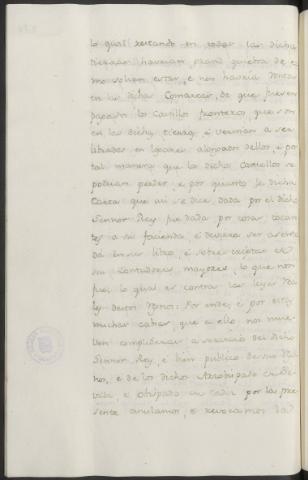 lo qual xertando en todas las dichas
tierras havarian grand quiebra de co
mo solian estar, e nos haveria Rentas
en las dichas Comarcas, de que fuesen
pagados los Castillos fronteros, que son
en las dichas tierras, e vernian a ser
librados en lugares alongados dellos, e por
tal manera que los dichos Castillos se
podrian perder, e por quanto la dicha
Carta que asi se dice, dada por el dicho
Sennor Rey fue dada por cosas tocan
tes a su facienda, e deviera ser asenta
da en sus libros, e sobre escripta de
sus Contadores mayores, lo que non
fue, lo qual es contra las leyes Rea
les destos Rgnos: Por ende, e por otras
muchas cabsas, que a ello nos mue
ven complideras a servicio del dicho
Sennor Rey, e bien publico de sus Reg
nos, e de los dichos Arzobispado de Se
villa, e obispado de Cadiz por la pre
sente anulamos, e revocamos la